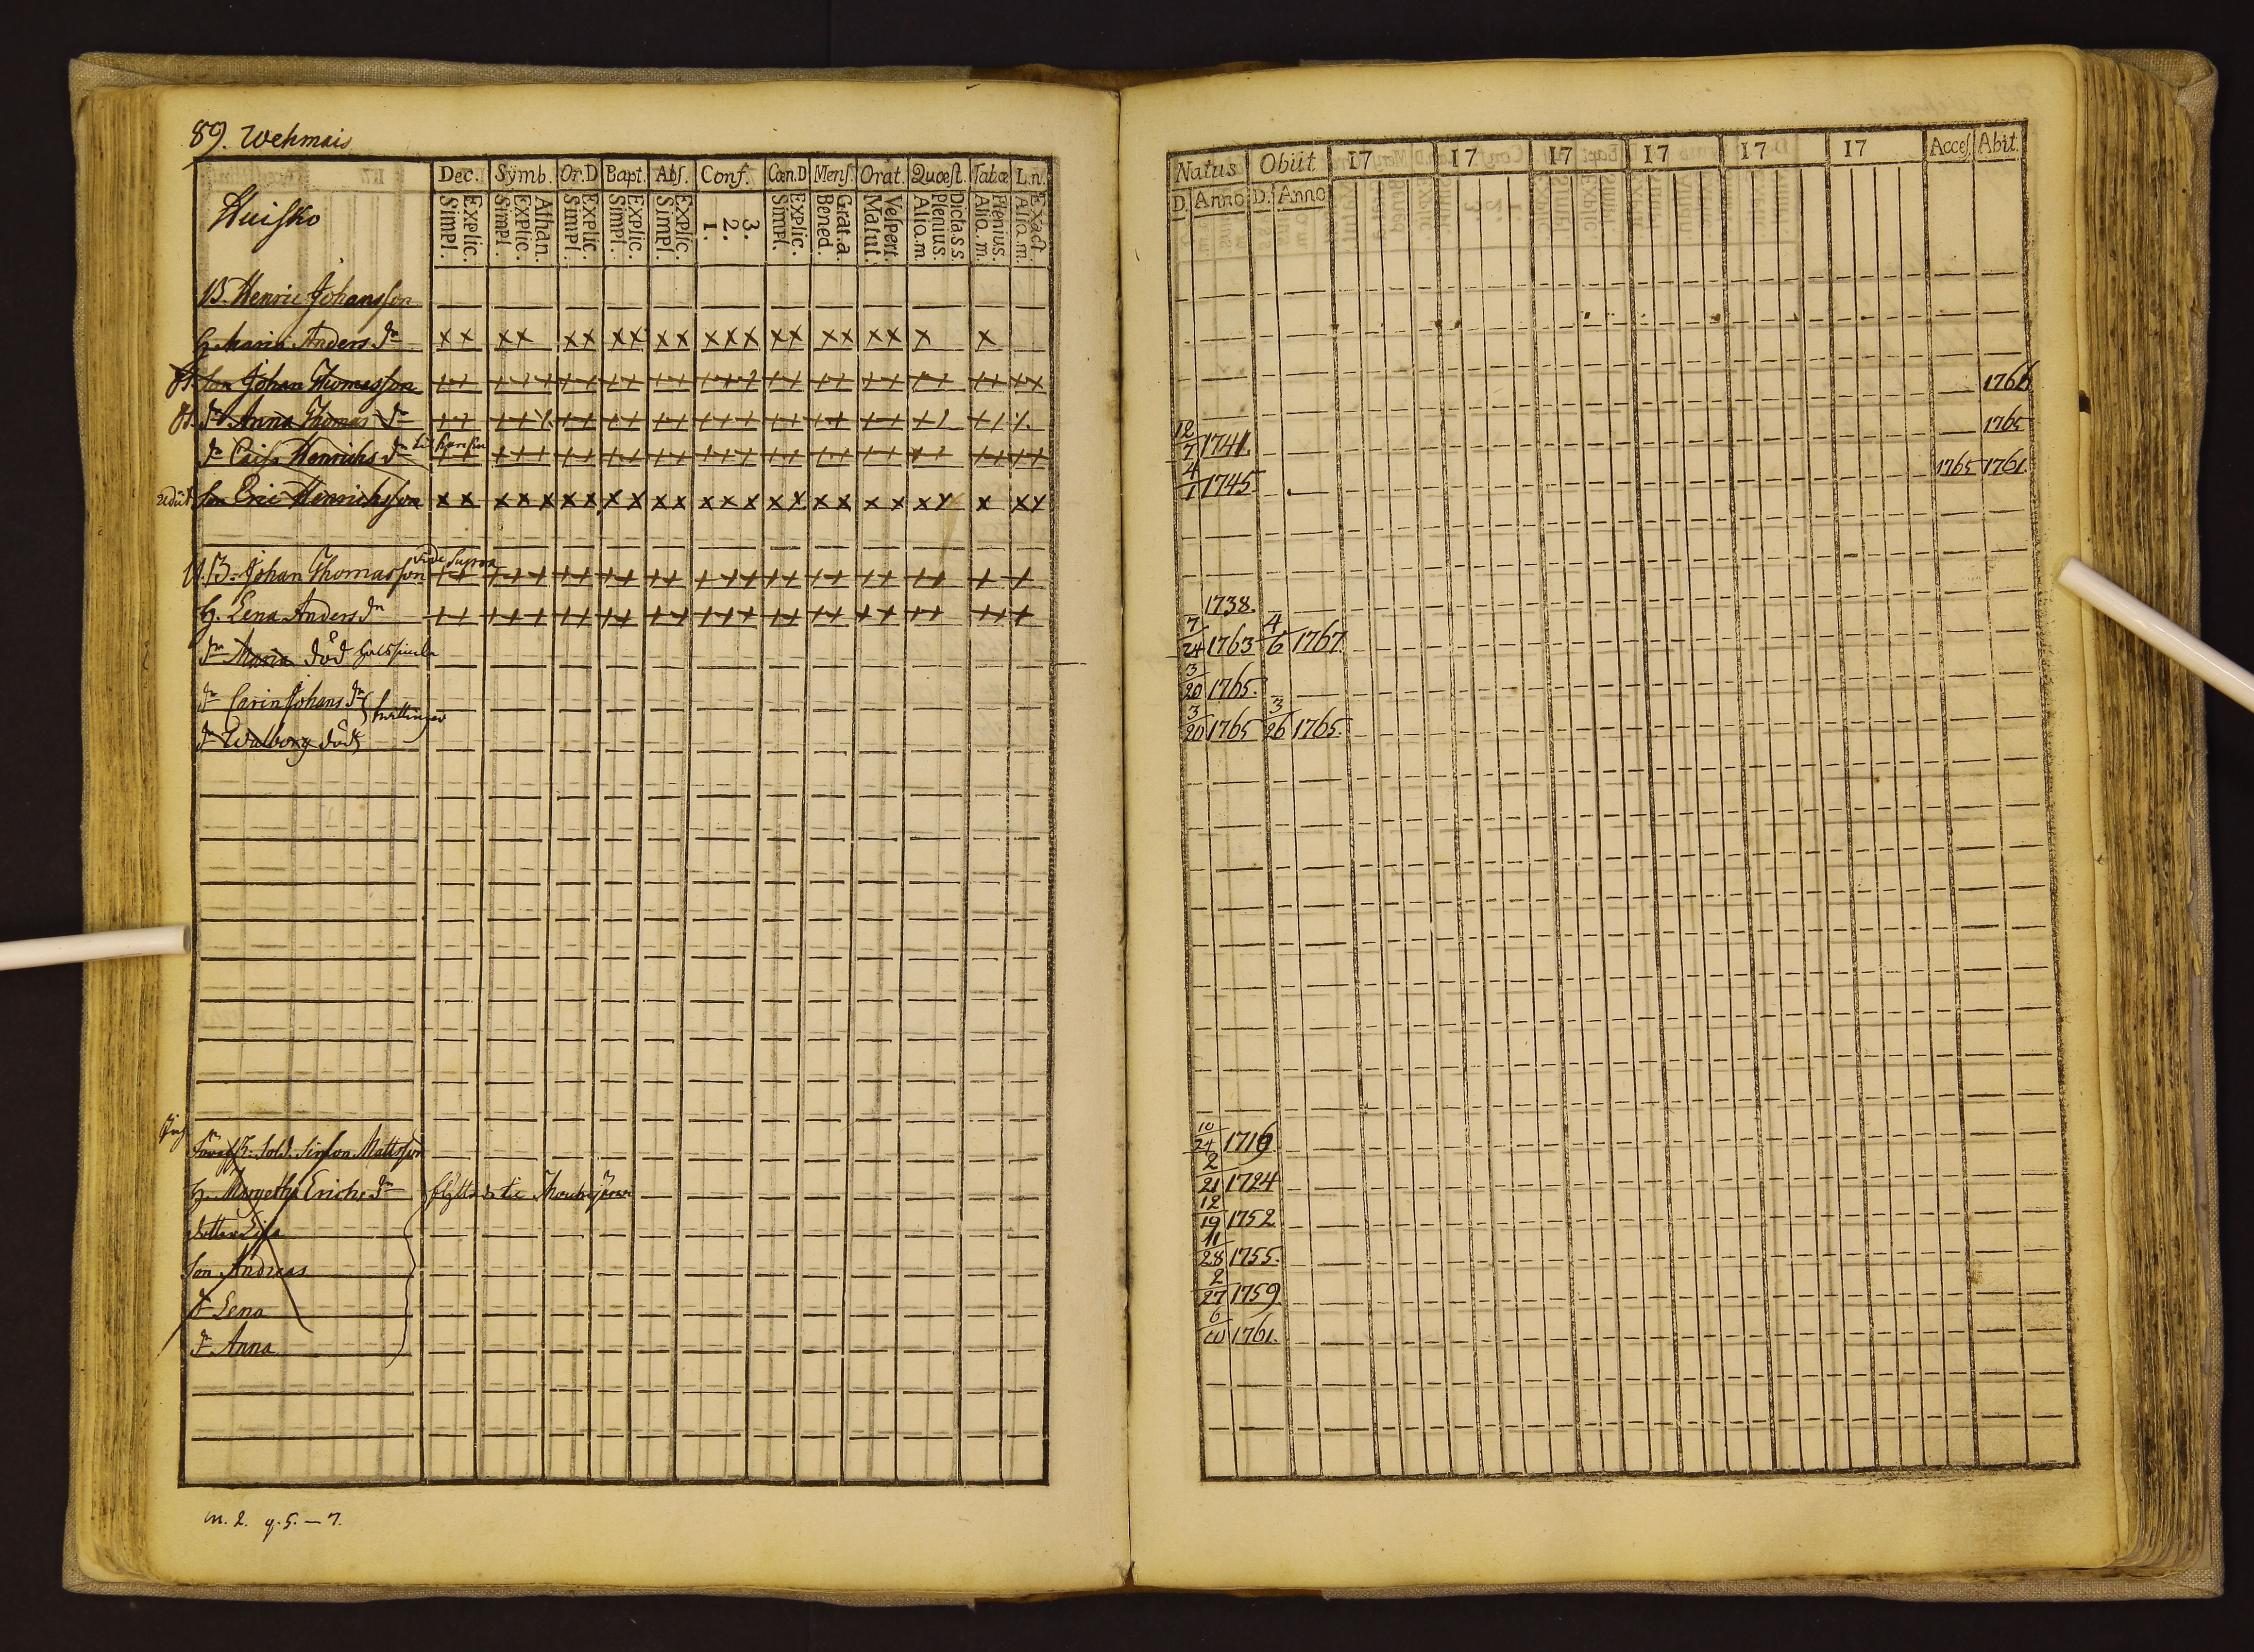 89. Wehmais
Dec. Symb. Or.D Bapt. Abs. Conf. Cœn.D Mens. Orat. Quœst. Tabœ L.n.
Huisko
Explic. Simpl. Athan. Explic. Simpl. Explic. Simpl. Explic. Simpl. Explic. Simpl. 3. 2. 1. Explic. Simpl. Grat.a Bened. Vespert. Matut. Dicta.S.S. Plenius. Aliq.m Plenius. Aliq.m. Exact. Aliq.m.
B. Henric Johansson
H. Maria Anders dr x x x x x x x x x x x x x x x x x x x x x
Son Johan Thomasson
dr Anna Thomas dr
dr Caisa Henrichs dr
Son Eric Henrichsson x x x x x x x x x x x x x x x x x x x x x x x x x x
B. Johan Thomasson vide supra
H. Lena Anders dr
dr Maria död
dr Carin Johans dr tvillingar
dr Walborg död
Sold. Simon Mattsson
H. Margetha Erichs dr flytt
dotter Lisa
Son Andreas
dr Lena
dr Anna
m. 2. q. 5. — 7.
Natus Obiit 17 17 17 17 17 17 Acces. Abit.
D. Anno D. Anno
1766
12/7 1741. 1765
4/1 1745 1765 1761
1738.
7/24 1763 4/6 1767
3/20 1765.
3/20 1765 3/26 1765.
10/24 1716
2/21 1724
12/19 1752
11/28 1755.
2/27 1759
6/10 1761.